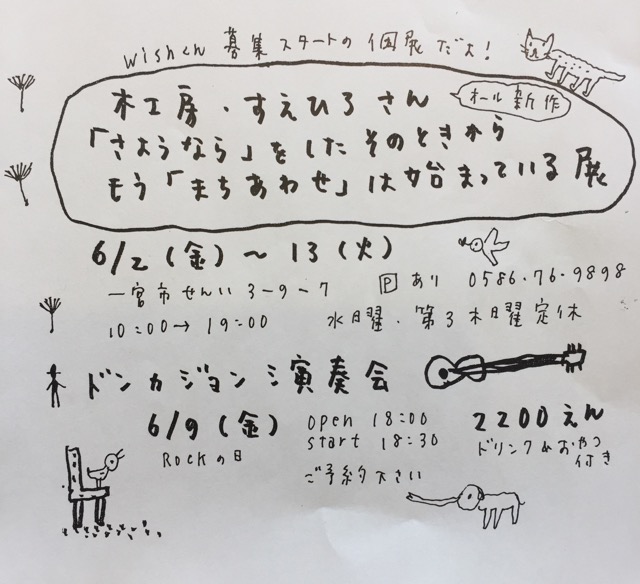 wishくん 募集スタートの個展だよ!
木工房・すえひろさん
オール新作
「さようなら」をしたそのときから
もう「まちあわせ」は始まっている展
6/2(金)〜13(火)
一宮市せんい3-9-7
P あり 0586.76.9898
10:00→19:00
水曜・第3木曜定休
ドンカジョン演奏会
6/9(金)
Rockの日
open 18:00
start 18:30
ご予約下さい
2200えん
ドリンク&おやつ
付き